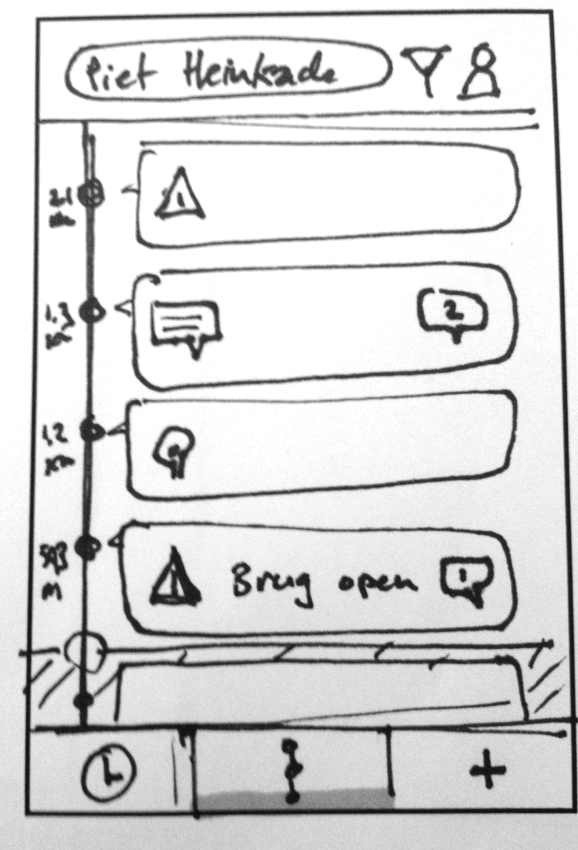 Piet Heinkade
2.1
km
1.3
km
2
1.2
km
593
m
Brug open
1